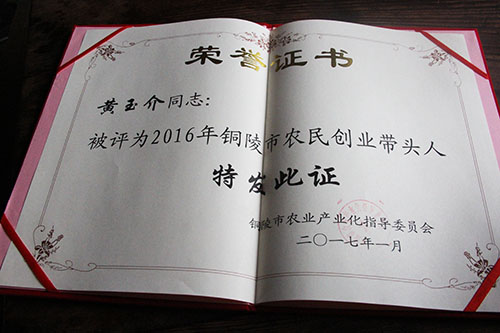 荣誉证书
黄玉介同志：
被评为2016年铜陵市农民创业带头人
特发此证
铜陵市农业产业化指导委员会
二〇一七年一月